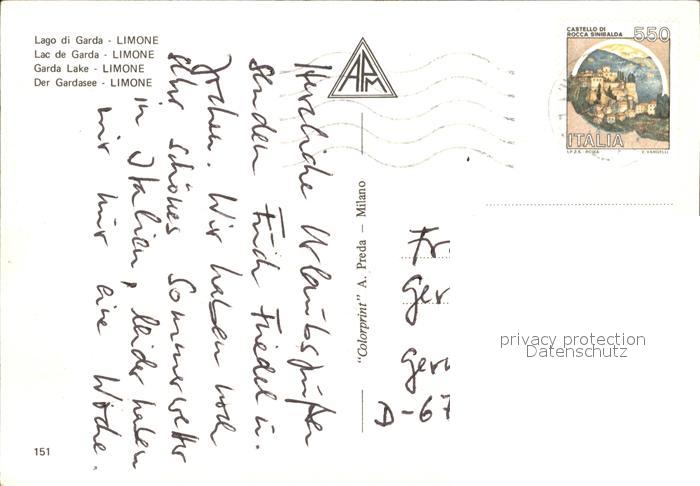 Lago di Garda - LIMONE
Lac de Garda - LIMONE
Garda Lake - LIMONE
Der Gardasee - LIMONE
APM
CASTELLO DI
ROCCA SINIBALDA
550
ITALIA
I.P.Z.S. - ROMA E. VANGELLI
Herzliche Urlaubsgrüße
senden Euch Friedel u.
Wir haben noch
sehr schönes Sommerwetter
in Italien, leider haben
wir nur eine Woche.
"Colorprint" A. Preda - Milano
Fr
ger
gern
D-67
privacy protection
Datenschutz
151